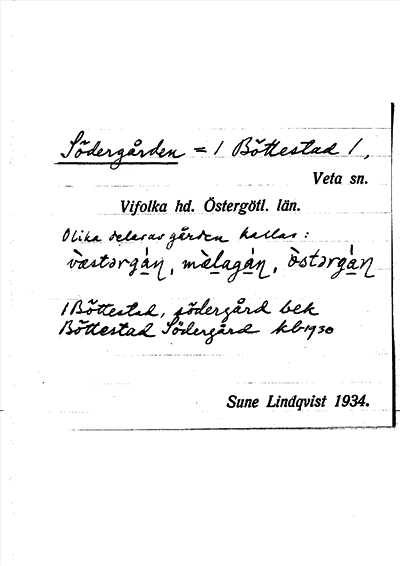 Södergården = 1 Böttestad 1,
Veta sn.
Vifolka hd. Östergötl. län.
Olika delar av gården kallas:
vä̀stərgá̱ɳ, mä̀lagá̱ɳ, ö̀stərgá̱ɳ
1 Böttestad, södergård bek
Böttestad Södergård kb 1930
Sune Lindqvist 1934.